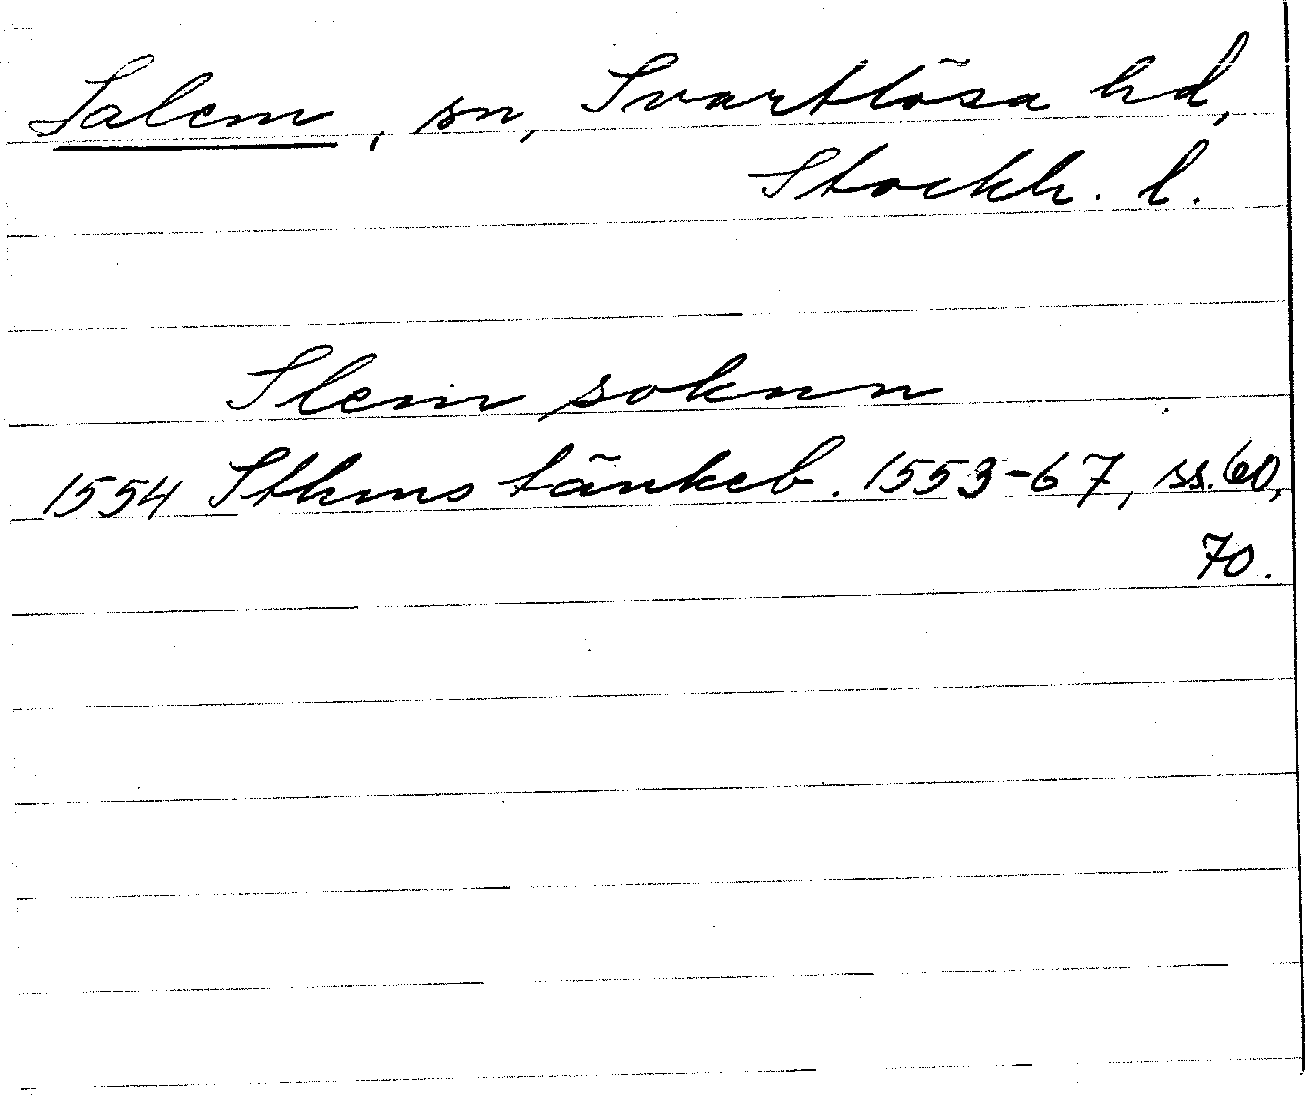 Salem, sn, Svartlösa hd,
Stockh. l.
Slem soknn
1554 Sthms tänkeb. 1553-67, ss. 60,
70.